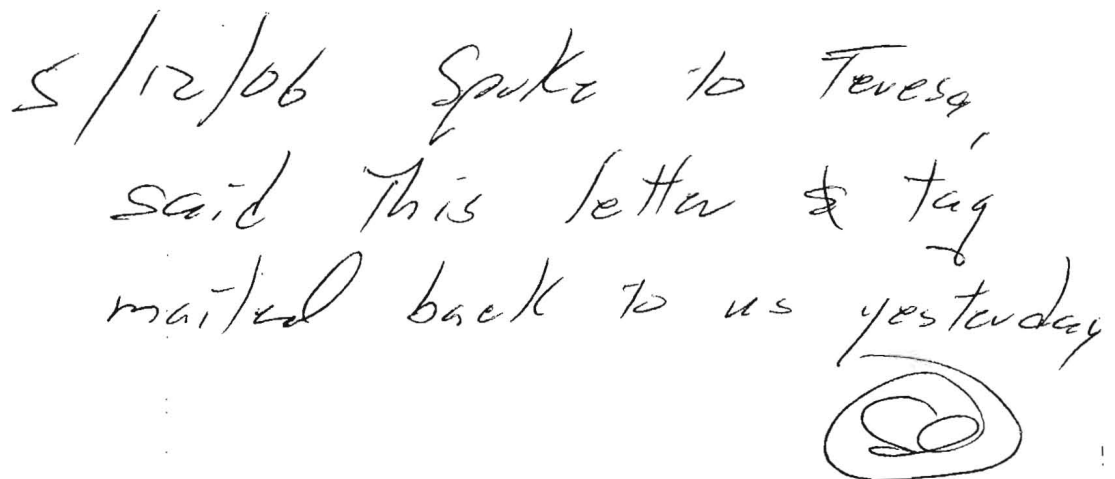 5/12/06 Spoke to Teresa,
said This letter & tag
mailed back to us yesterday